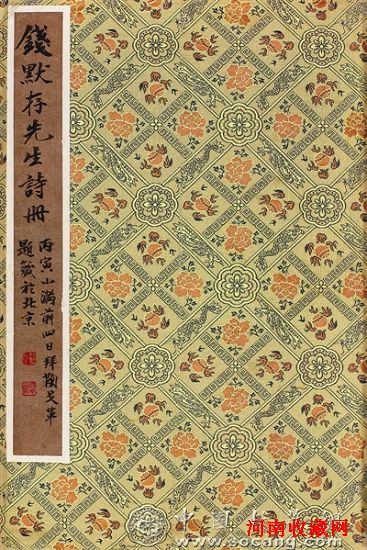 錢默存先生詩冊
丙寅小滿前四日拜觀戈革
題籤於北京
河南收藏网
www.socang.com